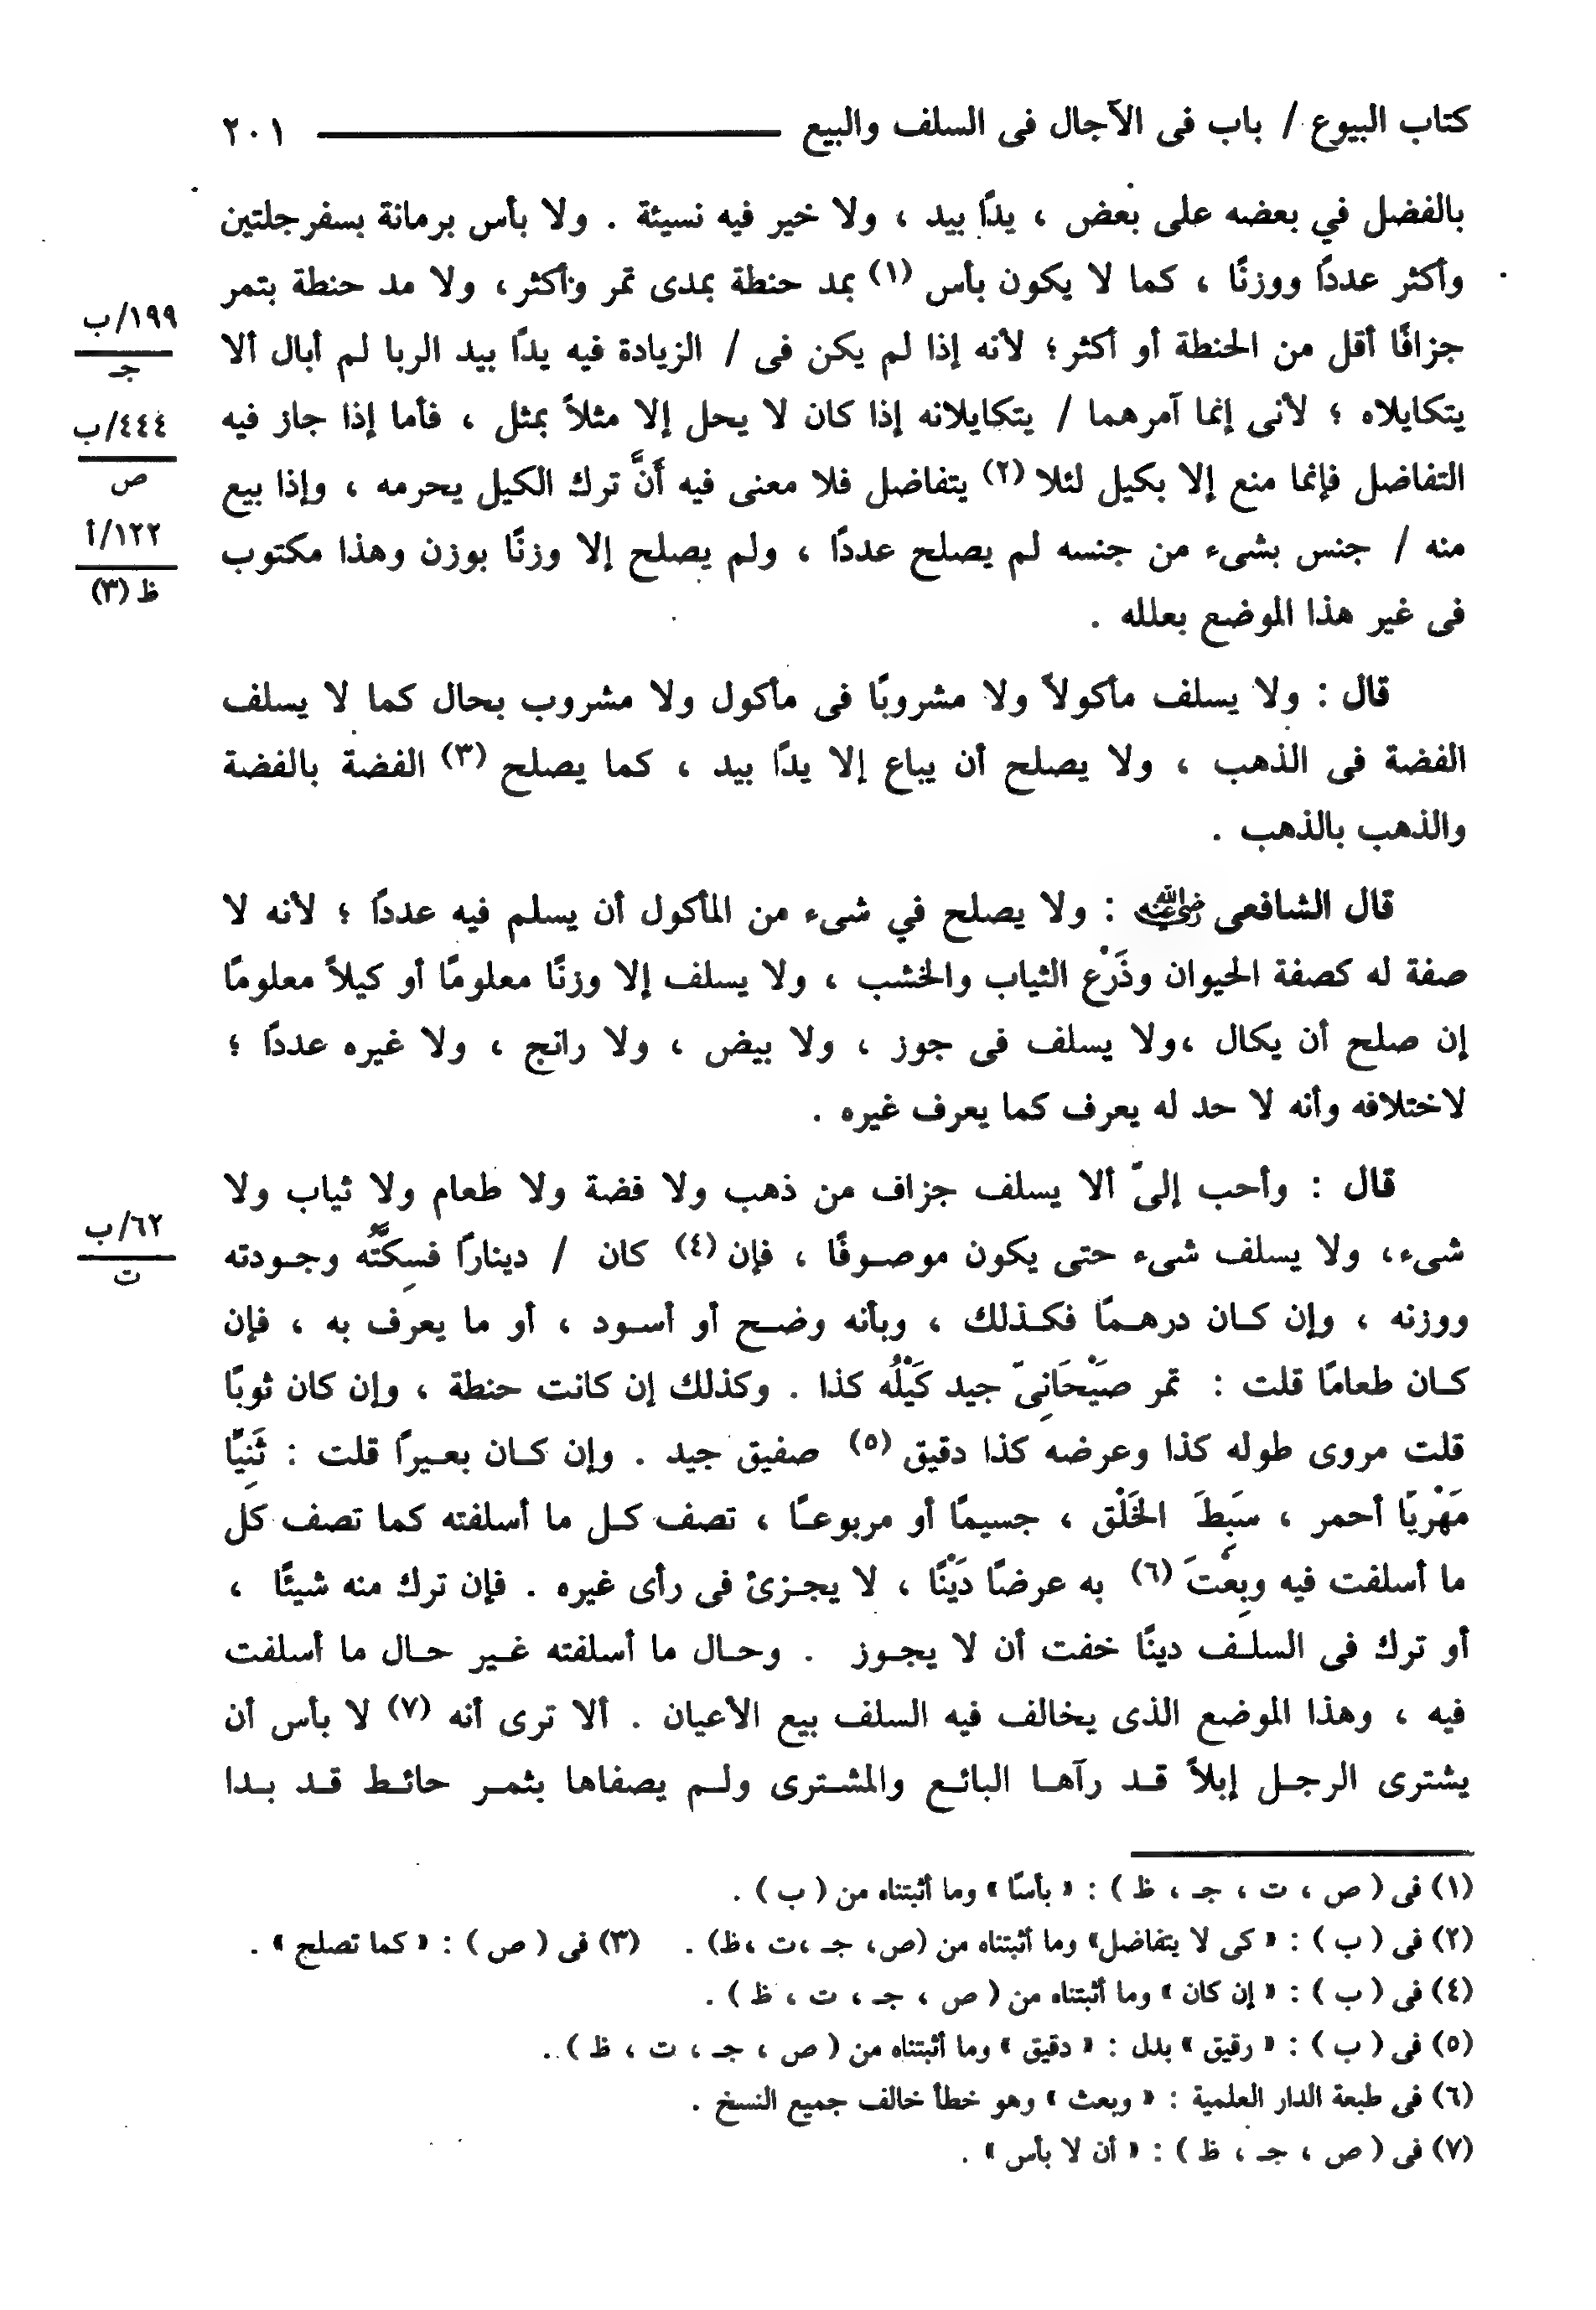 كتاب البيوع / باب فى الآجال فى السلف والبيع ٢٠١
بالفضل في بعضه على بعض ، يدًا بيد ، ولا خير فيه نسيئة . ولا بأس برمانة بسفرجلتين
وأكثر عددًا ووزنًا ، كما لا يكون بأس (١) بمد حنطة بمدى تمر وأكثر، ولا مد حنطة بتمر
جزافًا أقل من الحنطة أو أكثر؛ لأنه إذا لم يكن فى / الزيادة فيه يدًا بيد الربا لم أبال ألا
١٩٩/ب
جـ
يتكايلاه ؛ لأنى إنما آمرهما / يتكايلانه إذا كان لا يحل إلا مثلاً بمثل ، فأما إذا جاز فيه
٤٤٤/ب
ص
التفاضل فإنما منع إلا بكيل لئلا (٢) يتفاضل فلا معنى فيه أَنَّ ترك الكيل يحرمه ، وإذا بيع
منه / جنس بشىء من جنسه لم يصلح عددًا ، ولم يصلح إلا وزنًا بوزن وهذا مكتوب
١٢٢/أ
ظ (٣)
فى غير هذا الموضع بعلله .
قال : ولا يسلف مأكولاً ولا مشروبًا فى مأكول ولا مشروب بحال كما لا يسلف
الفضة فى الذهب ، ولا يصلح أن يباع إلا يدًا بيد ، كما يصلح (٣) الفضة بالفضة
والذهب بالذهب .
قال الشافعى رضي الله عنه : ولا يصلح في شىء من المأكول أن يسلم فيه عددًا ؛ لأنه لا
صفة له كصفة الحيوان وذَرْع الثياب والخشب ، ولا يسلف إلا وزنًا معلومًا أو كيلاً معلومًا
إن صلح أن يكال ،ولا يسلف فى جوز ، ولا بيض ، ولا رانج ، ولا غيره عددًا ؛
لاختلافه وأنه لا حد له يعرف كما يعرف غيره .
قال : وأحب إلىّ ألا يسلف جزاف من ذهب ولا فضة ولا طعام ولا ثياب ولا
شىء، ولا يسلف شىء حتى يكون موصـوفًا ، فإن (٤) كان / دينارًا فسِكَّتُه وجـودته
٦٢/ب
ت
ووزنه ، وإن كـان درهـمًا فكـذلك ، وبأنه وضـح أو أسـود ، أو ما يعرف به ، فإن
كـان طعامًا قلت : تمر صَيْحَانِىّ جيد كَيْلُه كذا . وكذلك إن كانت حنطة ، وإن كان ثوبًا
قلت مروى طوله كذا وعرضه كذا دقيق (٥) صفيق جيد . وإن كـان بعـيرًا قلت : ثَنِيًّا
مَهْرِيًا أحمر ، سَبِطَ الخَلْق ، جسيمًا أو مربوعـًا ، تصف كـل ما أسلفته كما تصف كل
ما أسلفت فيه وبِعْتَ (٦) به عرضًا دَيْنًا ، لا يجـزئ فى رأى غيره . فإن ترك منه شيئًا ،
أو ترك فى السلـف دينًا خفت أن لا يجـوز . وحـال ما أسلفته غـير حـال ما أسلفت
فيه ، وهذا الموضع الذى يخالف فيه السلف بيع الأعيان . ألا ترى أنه (٧) لا بأس أن
يشترى الرجـل إبلاً قـد رآهـا البائـع والمشـترى ولـم يصفاها بثمـر حائـط قـد بـدا
(١) فى ( ص ، ت ، جـ ، ظ ) : « بأسًا » وما أثبتناه من ( ب ) .
(٢) فى ( ب ) : « كى لا يتفاضل» وما أثبتناه من (ص، جـ ،ت ،ظ) . (٣) فى ( ص ) : « كما تصلح » .
(٤) فى ( ب ) : « إن كان » وما أثبتناه من ( ص ، جـ ، ت ، ظ ) .
(٥) فى ( ب ) : « رقيق » بدل : « دقيق » وما أثبتناه من ( ص ، جـ ، ت ، ظ ) .
(٦) فى طبعة الدار العلمية : « وبعث » وهو خطأ خالف جميع النسخ .
(٧) فى ( ص ، جـ ، ظ ) : « أن لا بأس » .